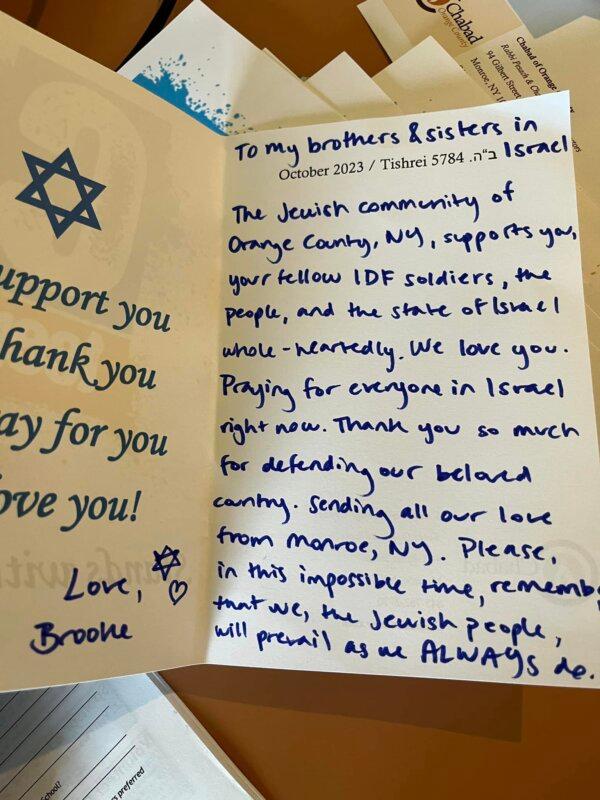 Chabad
Orange County
Chabad of Orange
Rabbi Pesach & Ch
94 Gilbert Street
Monroe, NY 10
upport you
hank you
ay for you
ove you!
Love,
Brooke
To my brothers & sisters in
Israel
October 2023 / Tishrei 5784 .ב"ה
The Jewish community of
Orange County, NY, supports you,
your fellow IDF soldiers, the
people, and the state of Israel
whole-heartedly. We love you.
Praying for everyone in Israel
right now. Thank you so much
for defending our beloved
country. Sending all our love
from Monroe, NY. Please,
in this impossible time, rememb
that we, the Jewish people,
will prevail as we ALWAYS do.
School?
s preferred